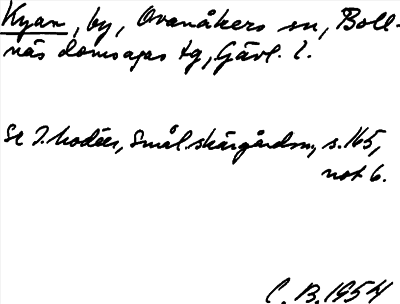 Kyan, by, Ovanåkers sn, Boll-
näs domsagas tg, Gävl. l.
Se I. Modéer, Smål. skärgårdsn., s. 165,
not 6.
C. B. 1954